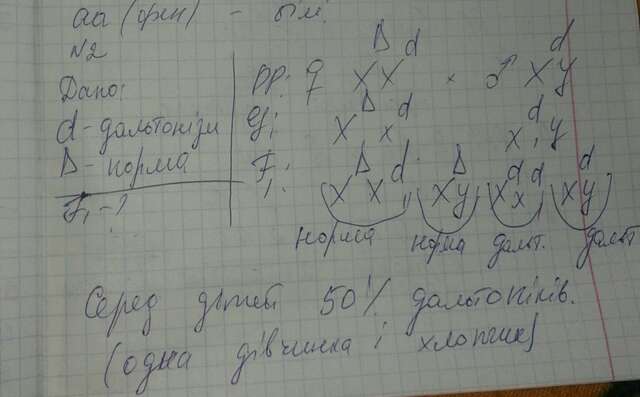 аа (фен) -
№2
Дано:
d - дальтонізм
D - норма
F₁ - ?
PP: ♀ XᴰXᵈ × ♂ XᵈY
G: Xᴰ Xᵈ Xᵈ, Y
F₁: XᴰXᵈ, XᴰY XᵈXᵈ XᵈY
норма норма дальт. дальт
Серед дітей 50% дальтоніків.
(одна дівчинка і хлопчик)